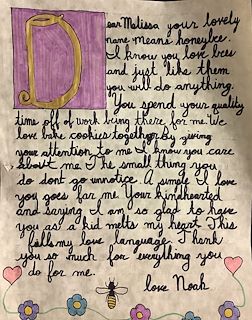 Dear Melissa your lovely
name means honeybee.
I know you love bees
and just like them
you will do anything.
You spend your quality
time off of work being there for me. We
love bake cookies together by giving
your attention to me I know you care
about me. The small thing you
do dont go unnotice. A simple I love
you goes far me. Your kindhearted
and saying I am so glad to have
you as a kid melts my heart. This
fills my love language. Thank
you so much for everything you
do for me.
love Noah